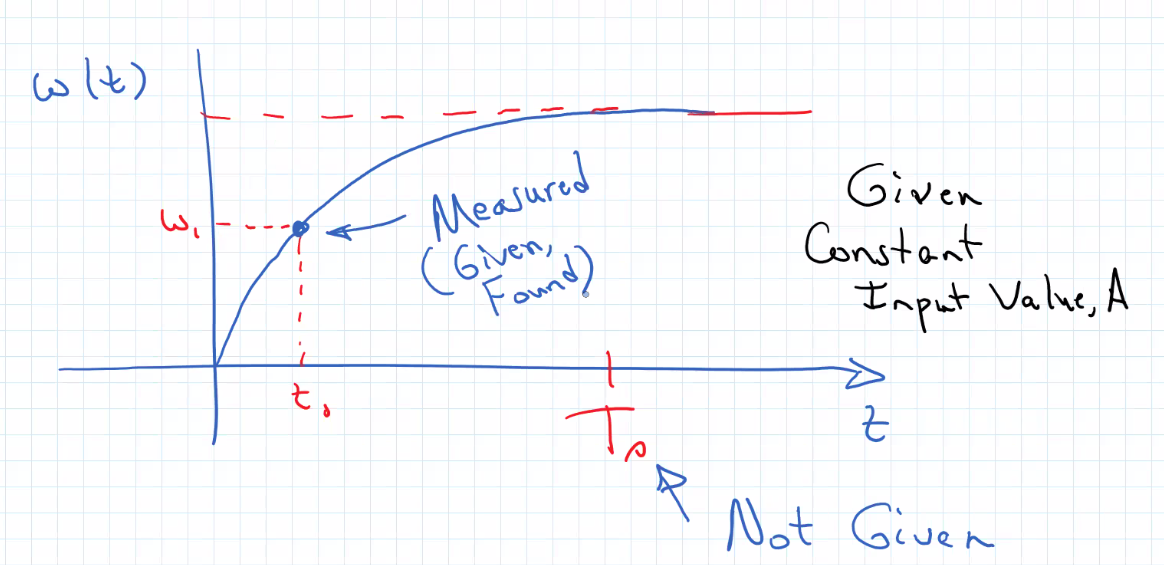 ω(t)
ω₁
Measured
(Given,
Found)
Given
Constant
Input Value, A
t₁
Ts
t
Not Given